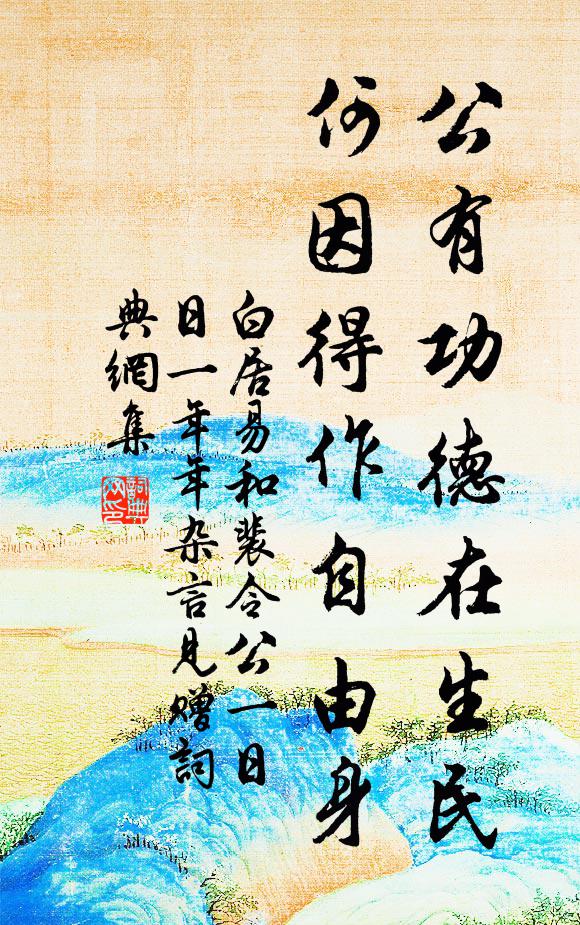 公有功德在生民
何因得作自由身
白居易和裴令公一日
日一年年杂言見赠詞
典網集